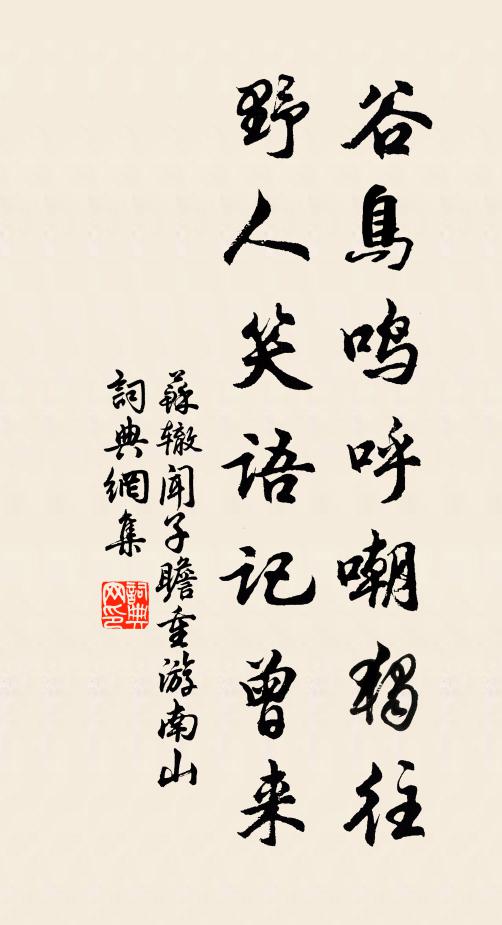 谷鳥鸣呼嘲獨往
野人笑語記曾来
蘇辙闻子瞻重游南山
詞典網集
詞典网印